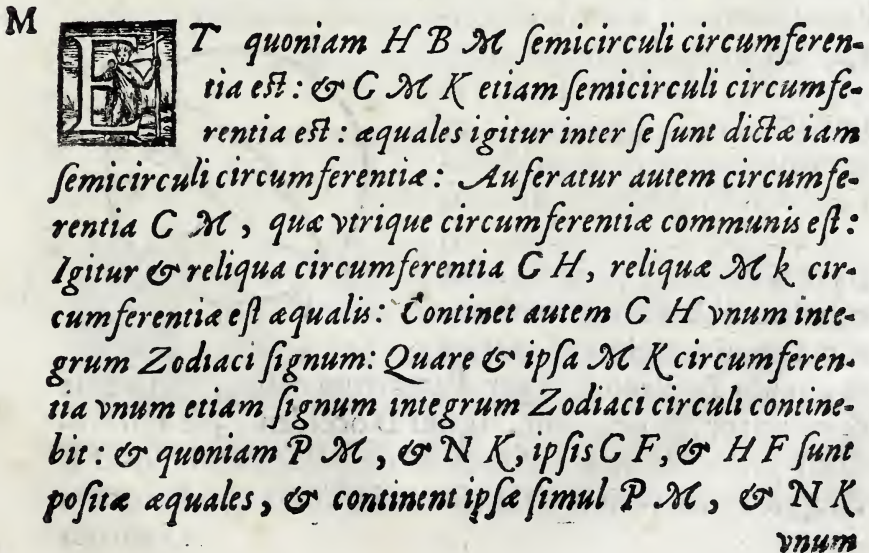 M
ET quoniam H B M ſemicirculi circumferen-
tia eſt: & G M K etiam ſemicirculi circumfe-
rentia eſt: æquales igitur inter ſe ſunt dictæ iam
ſemicirculi circumferentiæ: Auferatur autem circumfe-
rentia G M, quæ vtrique circumferentiæ communis eſt:
Igitur & reliqua circumferentia G H, reliquæ M k cir-
cumferentiæ eſt æqualis: Continet autem G H vnum inte-
grum Zodiaci ſignum: Quare & ipſa M K circumferen-
tia vnum etiam ſignum integrum Zodiaci circuli contine-
bit: & quoniam P M, & N K, ipſis G F, & H F ſunt
poſitæ æquales, & continent ipſæ ſimul P M, & N K
vnum